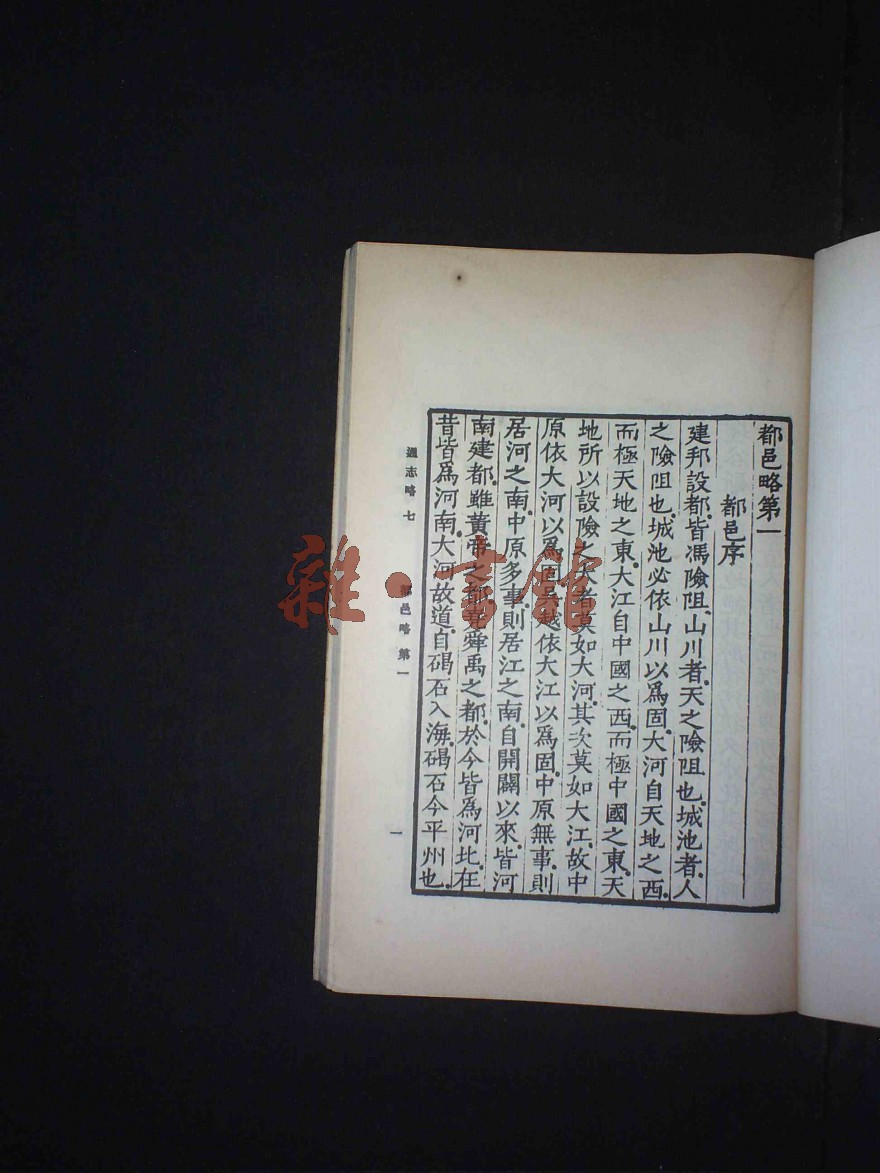 都邑略第一
都邑序
建邦設都，皆馮險阻。山川者，天之險阻也。城池者，人
之險阻也。城池必依山川以爲固。大河自天地之西，
而極天地之東。大江自中國之西，而極中國之東。天
地所以設險之大者，莫如大河。其次莫如大江。故中
原依大河以爲固，吳越依大江以爲固。中原無事，則
居河之南。中原多事，則居江之南。自開闢以來，皆河
南建都。雖黃帝之都，堯舜禹之都，於今皆爲河北。在
昔皆爲河南。大河故道，自碣石入海。碣石今平州也。
通志略 七 都邑略 第一 一
雜·書館